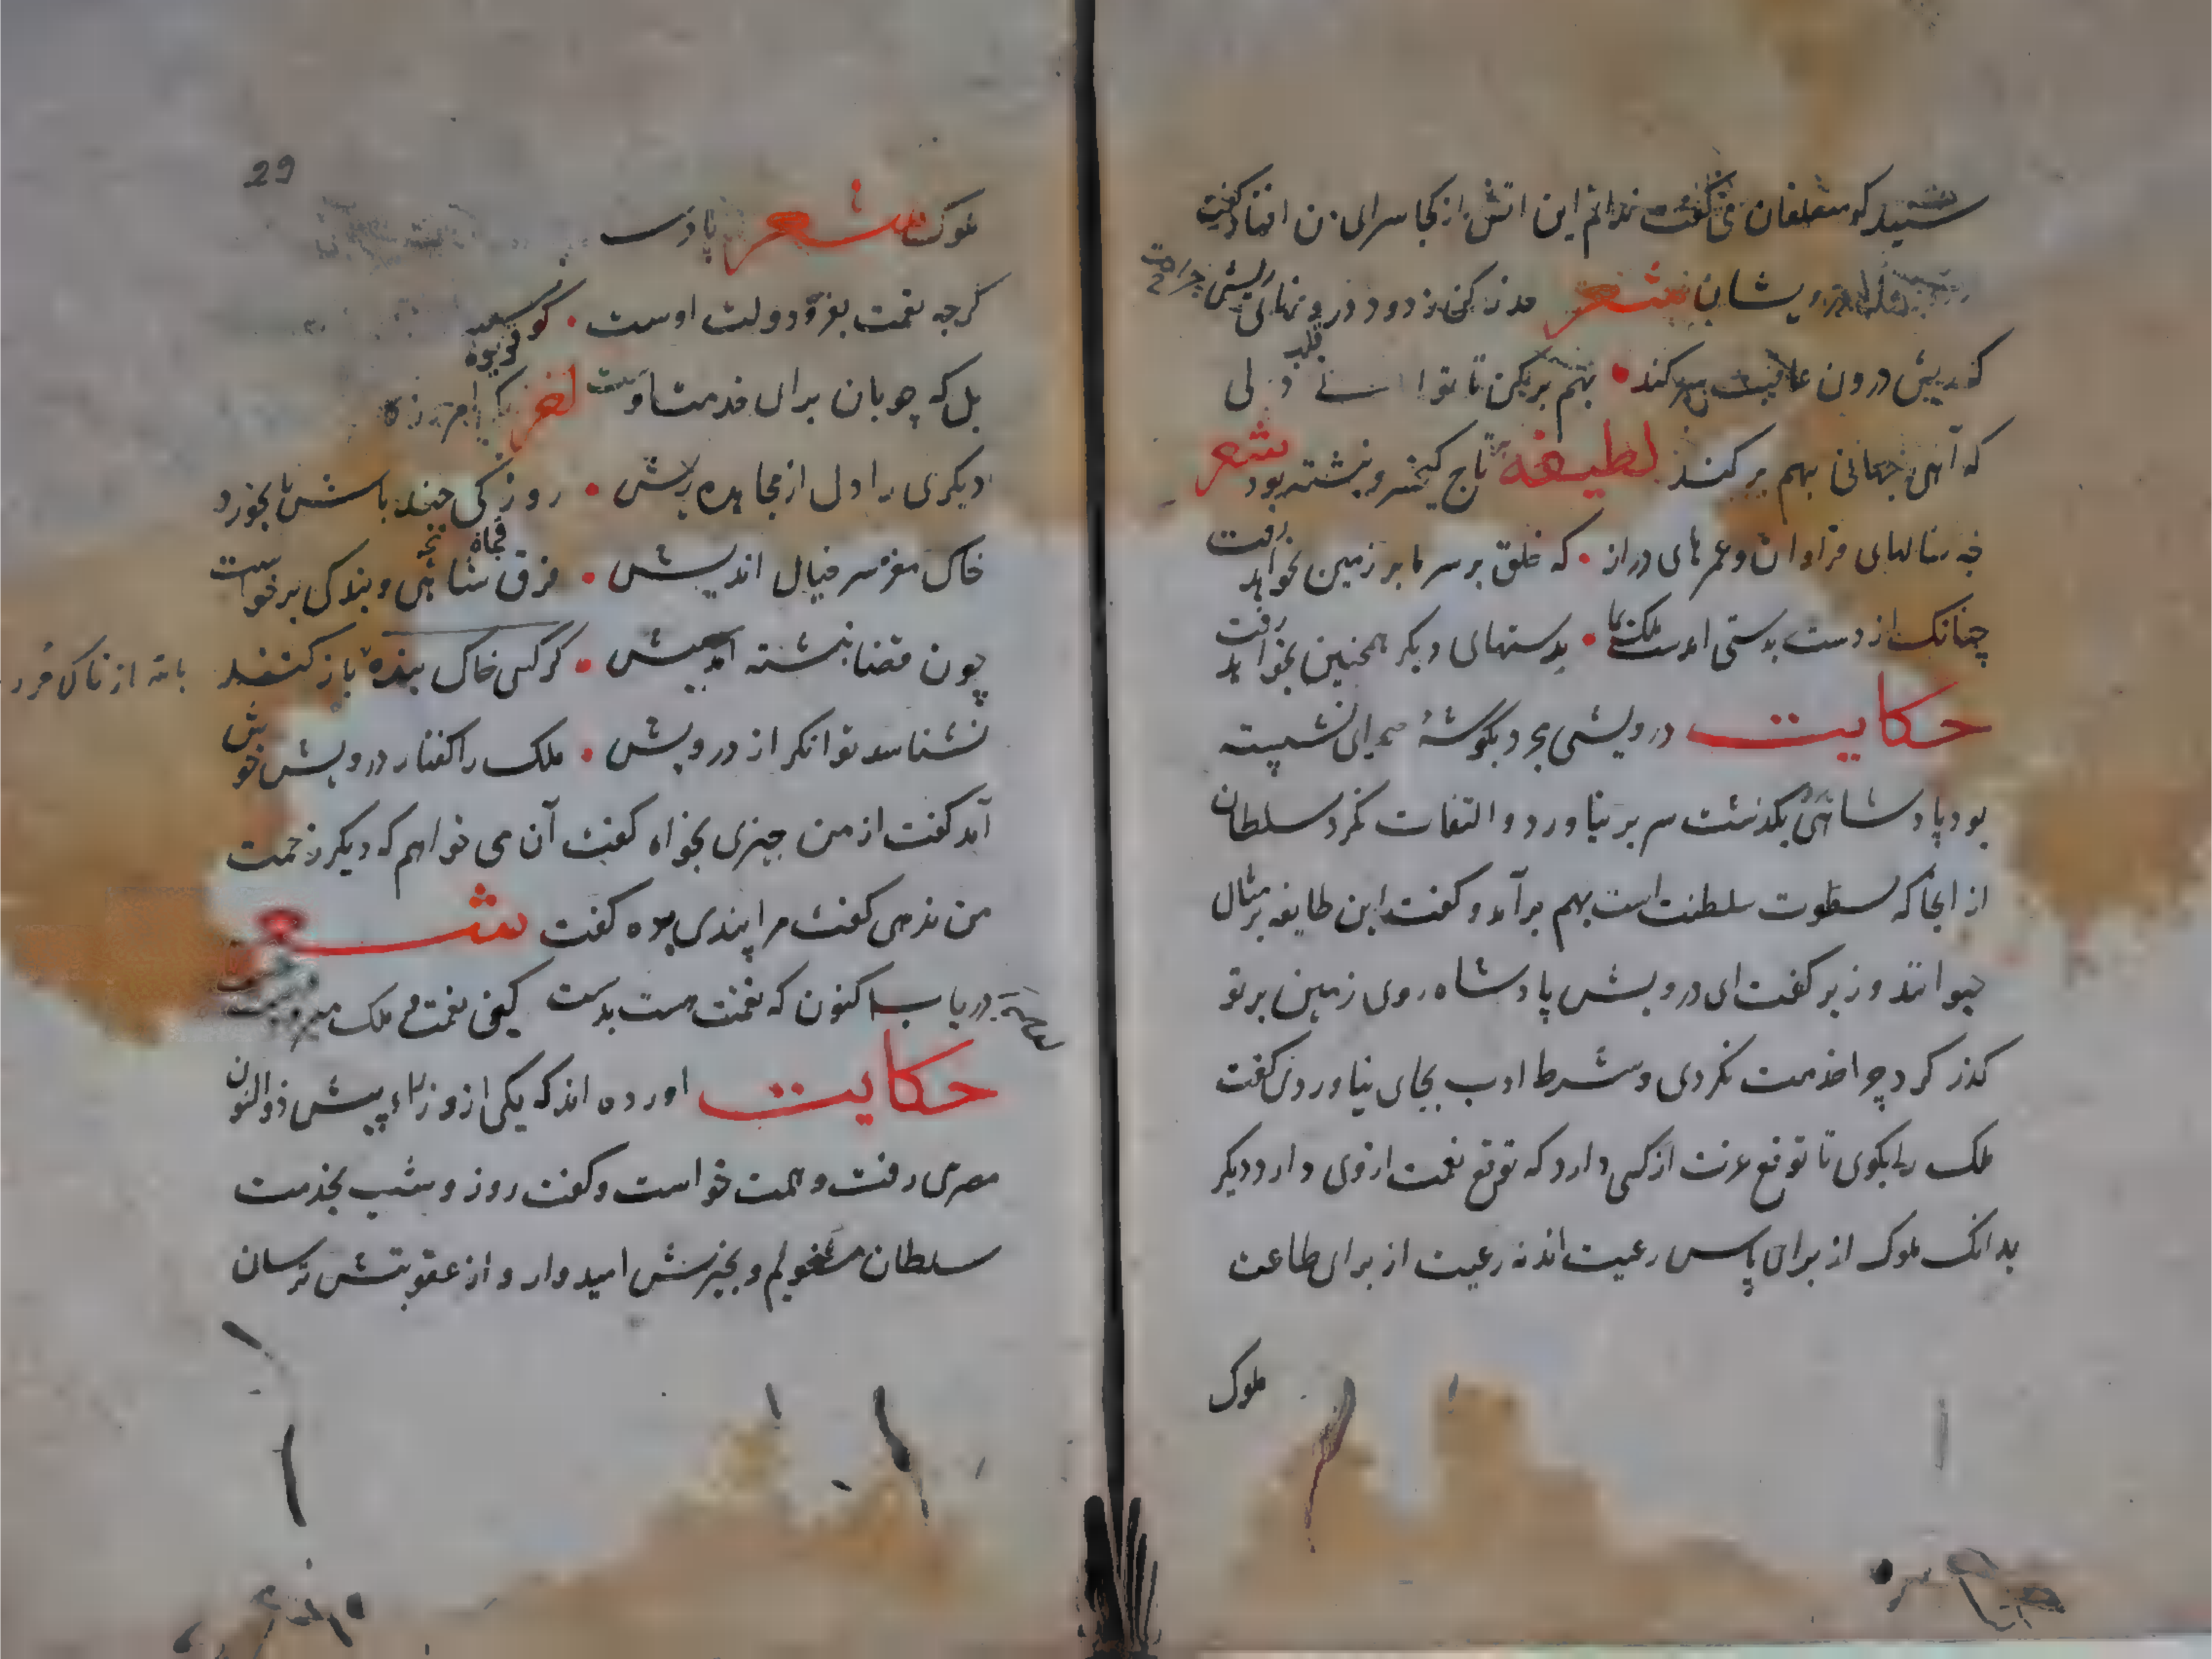 شنید که با متعلقان می گفت ندانم این اتش از کجا سرای من افتاد گفت
درویشان شعر حذر کن ز دود درونهای ریش
که ریش درون عاقبت سر کند • بهم بر مکن تا توانی دلی
که آهی جهانی بهم بر کند لطیفه تاج کیخسرو نبشته بود شعر
چه سالهای فراوان و عمرهای دراز • که خلق بر سر ما بر زمین بخواهد رفت
چنانک از دست بدستی امدست ملک بما • بدستهای دیگر همچنین بخواهد رفت
حکایت درویشی مجرد بگوشهٔ صحرای نشسته
بود پادشاهی بگذشت سر بر نیاورد و التفات نکرد سلطان
از انجا که سطوت سلطنت است بهم برآمد و گفت این طایفه بر مثال
حیوانند وزیر گفت ای درویش پادشاه روی زمین بر تو
کذر کرد چرا خدمت نکردی و شرط ادب بجای نیاوردی گفت
ملک را بگوی تا توقع عزت از کسی دارد که توقع نعمت از وی دارد دیگر
بدانک ملوک از برای پاس رعیت اند نه رعیت از برای طاعت
ملوک
29
ملوک شعر پا
گرچه نعمت بفر دولت اوست • گوسفند
بل که چوبان برای خدمت اوست
دیگری را دل از مجاهده ریش • روزکی چند باش تا بخورد
خاک مغز سر خیال اندیش • فرق شاهی و بندگی برخواست
چون قضا نبشته امد پیش • گر کسی خاک بنده باز کند
نشناسد توانگر از درویش • ملک را گفتار درویش خوش
آمد گفت از من چیزی بخواه گفت آن می خواهم که دیگر زحمت
من ندهی گفت مرا پندی بده گفت شعر
دریاب کنون که نعمت هست بدست کین نعمت و ملک میرود
حکایت اورده اند که یکی از وزراء پیش ذوالنون
مصری رفت و همت خواست و گفت روز و شب بخدمت
سلطان مشغولم و بخیرش امیدوار و از عقوبتش ترسان